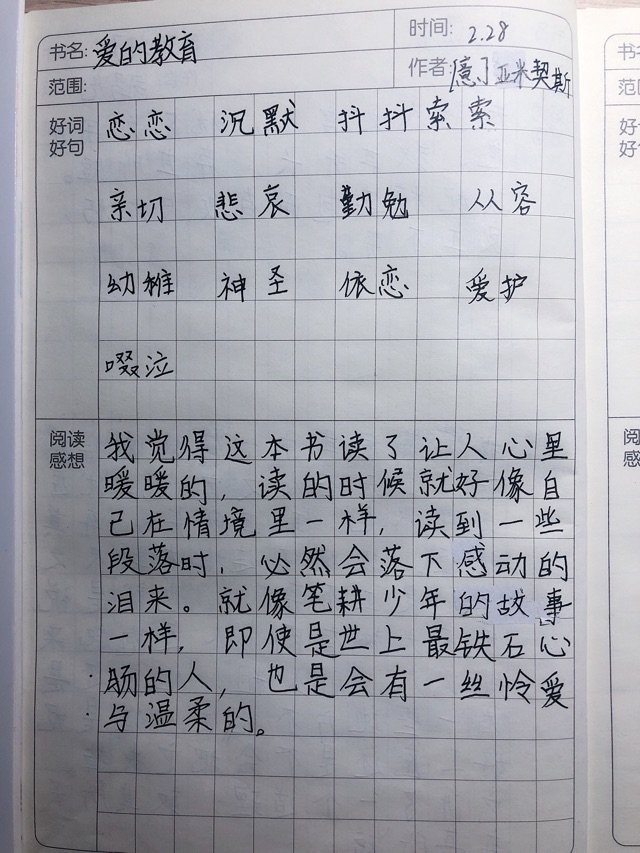 书名: 爱的教育
时间: 2.28
范围:
作者: [意] 亚米契斯
好词
好句
恋恋 沉默 抖抖索索
亲切 悲哀 勤勉 从容
幼稚 神圣 依恋 爱护
啜泣
阅读
感想
我觉得这本书读了让人心里
暖暖的，读的时候就好像自
己在情境里一样，读到一些
段落时，必然会落下感动的
泪来。就像笔耕少年的故事
一样，即使是世上最铁石心
肠的人，也是会有一丝怜爱
与温柔的。